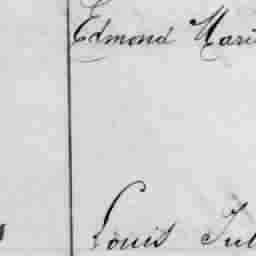 Edmond Mari
Louis Jul